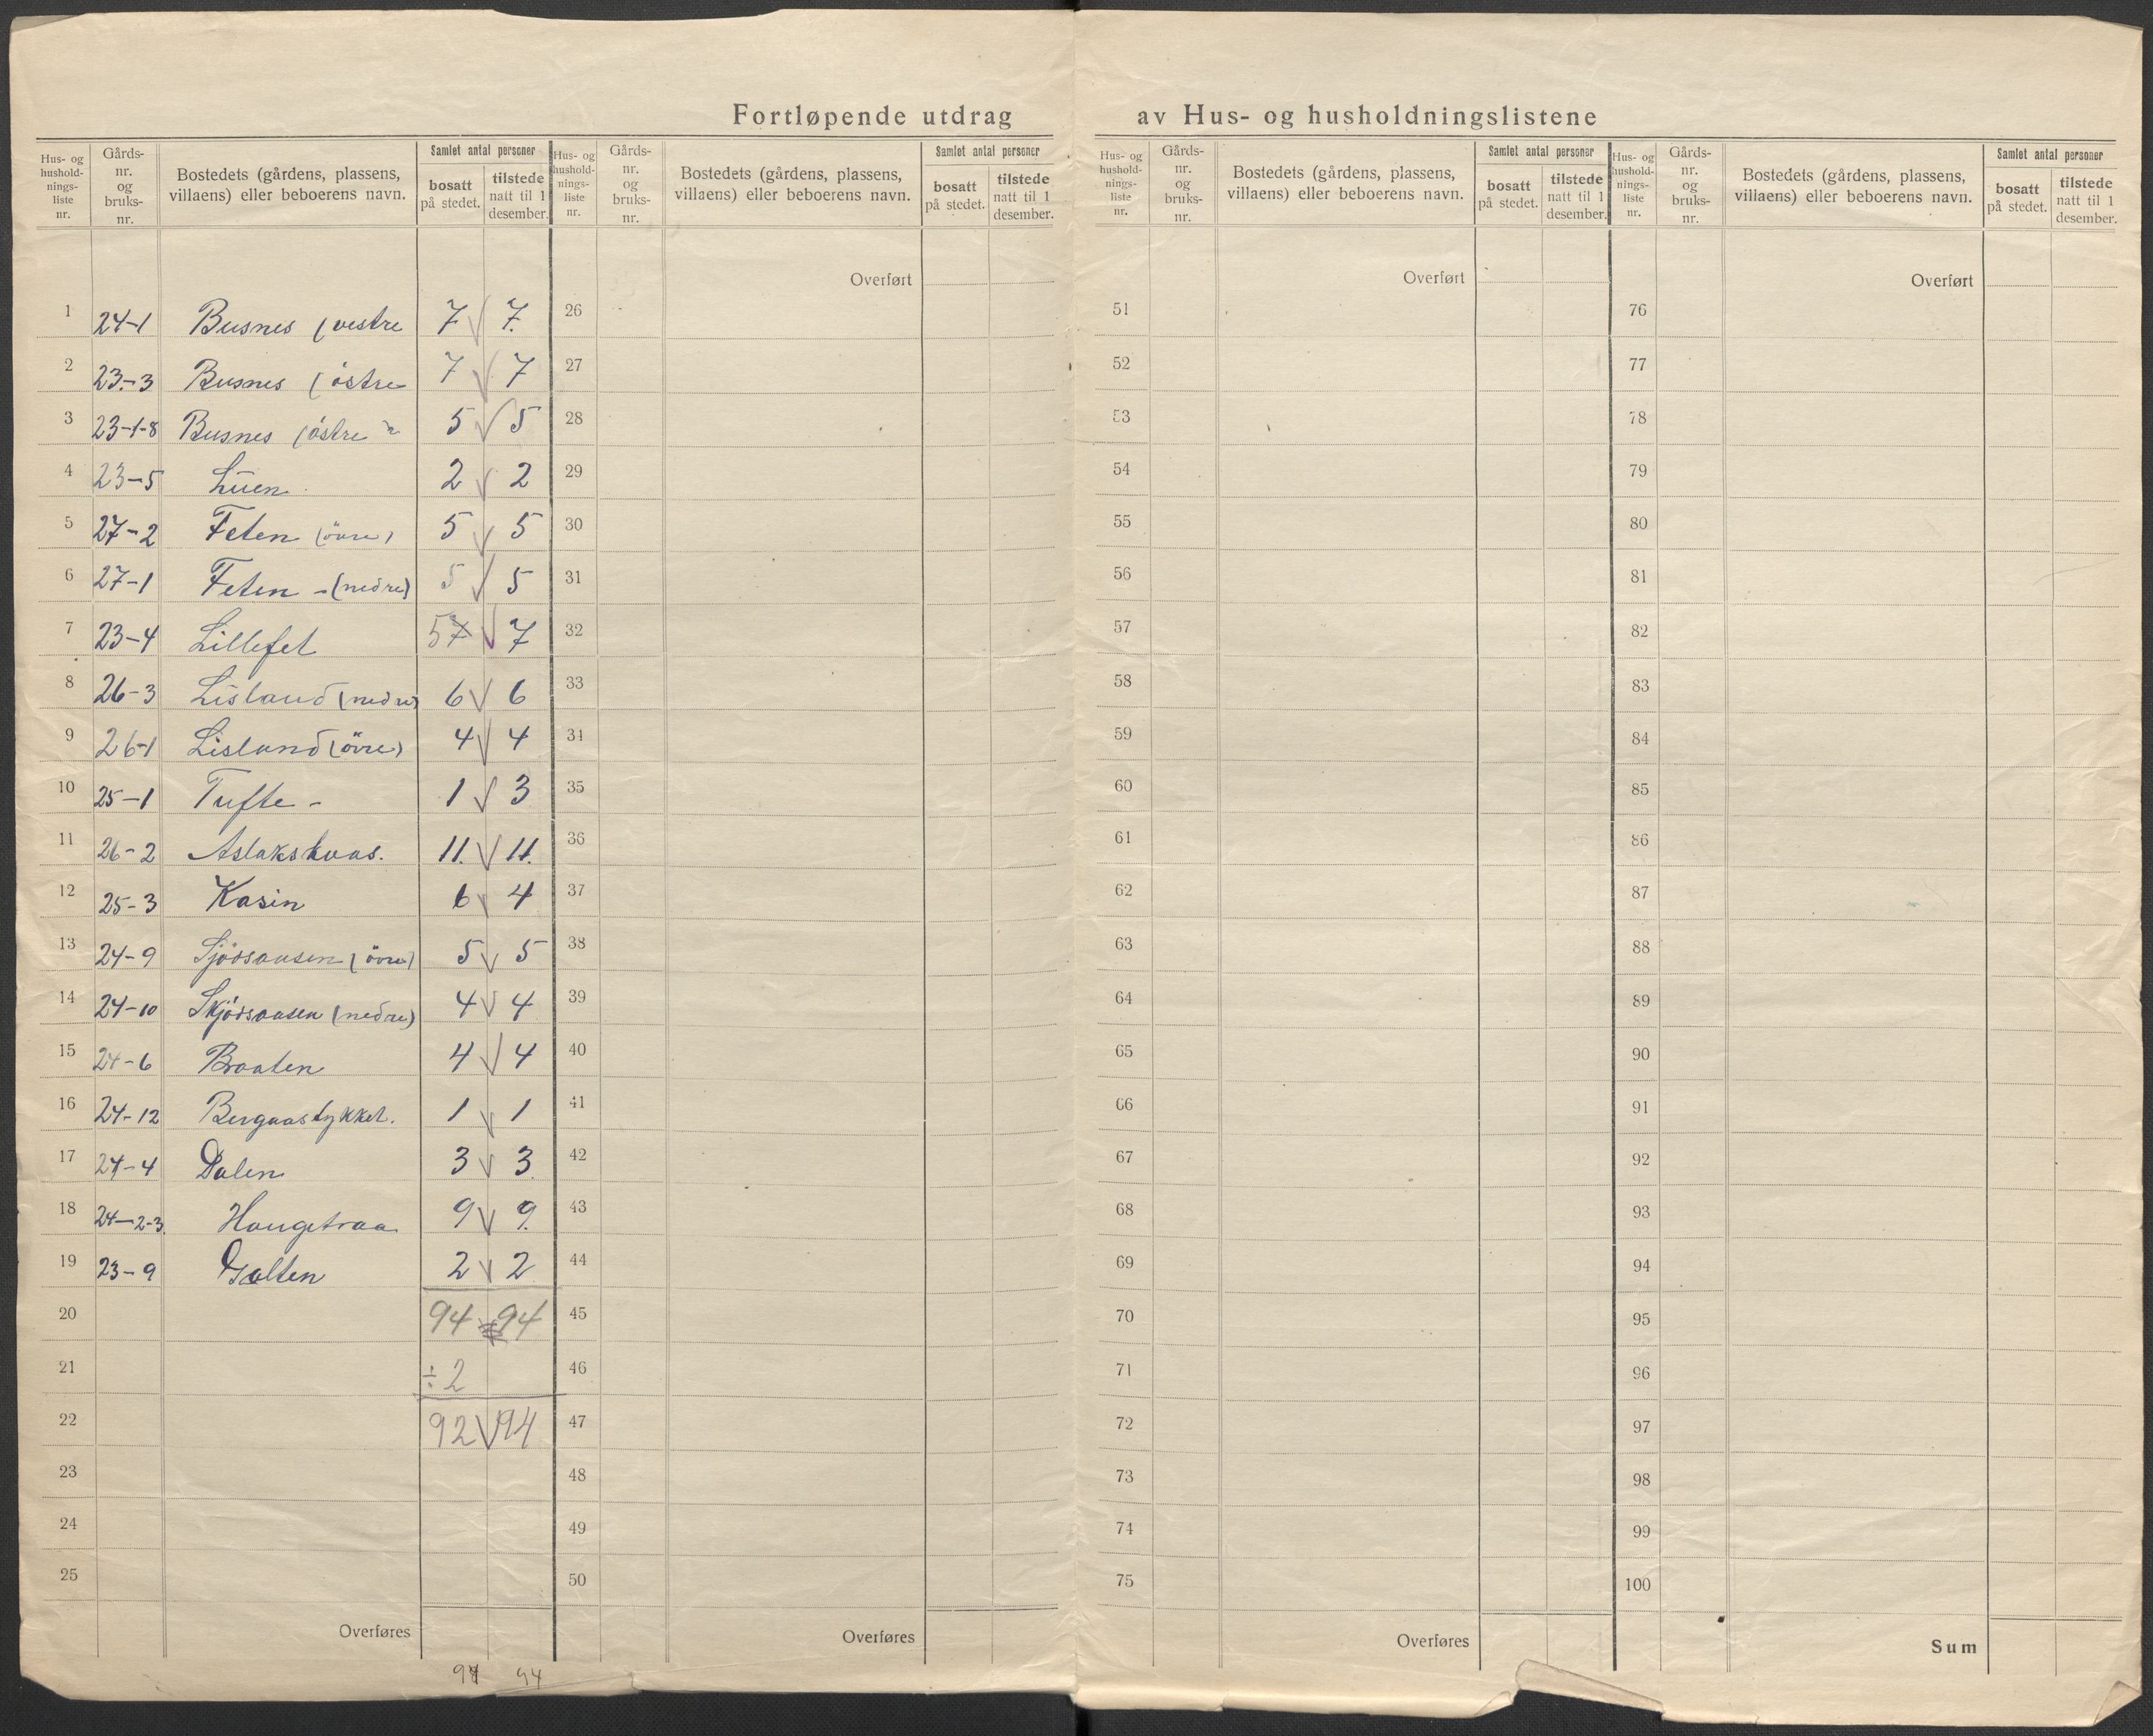 Fortløpende utdrag av Hus- og husholdningslistene
Hus- og hushold- nings- liste nr. | Gårds- nr. og bruks- nr. | Bostedets (gårdens, plassens, villaens) eller beboerens navn. | Samlet antal personer | bosatt på stedet. | tilstede natt til 1 desember.
Hus- og hushold- nings- liste nr. | Gårds- nr. og bruks- nr. | Bostedets (gårdens, plassens, villaens) eller beboerens navn. | Samlet antal personer | bosatt på stedet. | tilstede natt til 1 desember.
Hus- og hushold- nings- liste nr. | Gårds- nr. og bruks- nr. | Bostedets (gårdens, plassens, villaens) eller beboerens navn. | Samlet antal personer | bosatt på stedet. | tilstede natt til 1 desember.
Hus- og hushold- nings- liste nr. | Gårds- nr. og bruks- nr. | Bostedets (gårdens, plassens, villaens) eller beboerens navn. | Samlet antal personer | bosatt på stedet. | tilstede natt til 1 desember.
Overført Overført Overført
1 24-1 Busnes (vestre 7 7. 26 51 76
2 23-3 Busnes (östre 7 7 27 52 77
3 23-1-8 Busnes (östre 5 5 28 53 78
4 23-5 Luen 2 2 29 54 79
5 27-2 Feten (övre) 5 5 30 55 80
6 27-1 Feten - (nedre) 5 5 31 56 81
7 23-4 Lillefet 5 7 7 32 57 82
8 26-3 Lisland (nedre) 6 6 33 58 83
9 26-1 Lisland (övre) 4 4 34 59 84
10 25-1 Tufte - 1 3 35 60 85
11 26-2 Aslakshuas. 11. 11. 36 61 86
12 25-3 Kasin 6 4 37 62 87
13 24-9 Sjösaasen (övre) 5 5 38 63 88
14 24-10 Skjösaasen (nedre) 4 4 39 64 89
15 24-6 Braaten 4 4 40 65 90
16 24-12 Bergaastykket. 1 1 41 66 91
17 24-4 Dalen 3 3. 42 67 92
18 24-2-3. Haugetraa 9 9. 43 68 93
19 23-9 Galten 2 2 44 69 94
20 94 94 45 70 95
21 ÷2 46 71 96
22 92 94 47 72 97
23 48 73 98
24 49 74 99
25 50 75 100
Overføres Overføres Overføres Sum
94 94